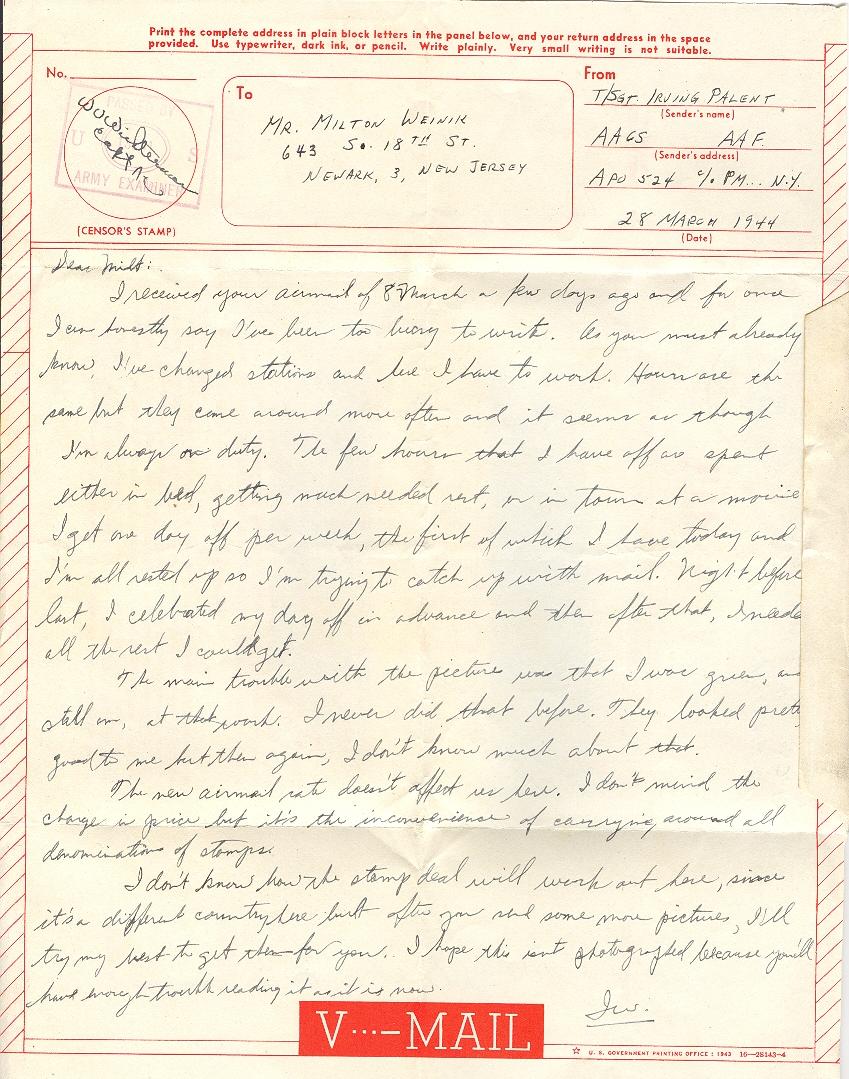 Print the complete address in plain block letters in the panel below, and your return address in the space
provided. Use typewriter, dark ink, or pencil. Write plainly. Very small writing is not suitable.
No.
To
From
MR. MILTON WEINIK
643 So. 18TH ST.
NEWARK, 3, NEW JERSEY
T/SGT. IRVING PALENT
(Sender's name)
AACS AAF
(Sender's address)
APO 524 c/o PM... N.Y.
28 MARCH 1944
(Date)
PASSED BY
U S
ARMY EXAMINER
(CENSOR'S STAMP)
Dear Milt:
I received your airmail of 8 March a few days ago and for once
I can honestly say I've been too busy to write. As you must already
know, I've changed stations and here I have to work. Hours are the
same but they come around more often and it seems as though
I'm always on duty. The few hours that I have off are spent
either in bed, getting much needed rest, or in town at a movie
I get one day off per week, the first of which I have today and
I'm all rested up so I'm trying to catch up with mail. Night before
last, I celebrated my day off in advance and then after that, I neede
all the rest I could get.
The main trouble with the picture was that I was green, an
still am, at that work. I never did that before. They looked prett
good to me but then again, I don't know much about that.
The new airmail rate doesn't affect us here. I don't mind the
change in price but it's the inconvenience of carrying around all
denominations of stamps.
I don't know how the stamp deal will work out here, since
it's a different country here but after you send some more pictures, I'll
try my best to get them for you. I hope this isn't photografted because you'll
have enough trouble reading it as it is now.
Irv.
V···—MAIL
☆ U. S. GOVERNMENT PRINTING OFFICE : 1943 16—28143-4